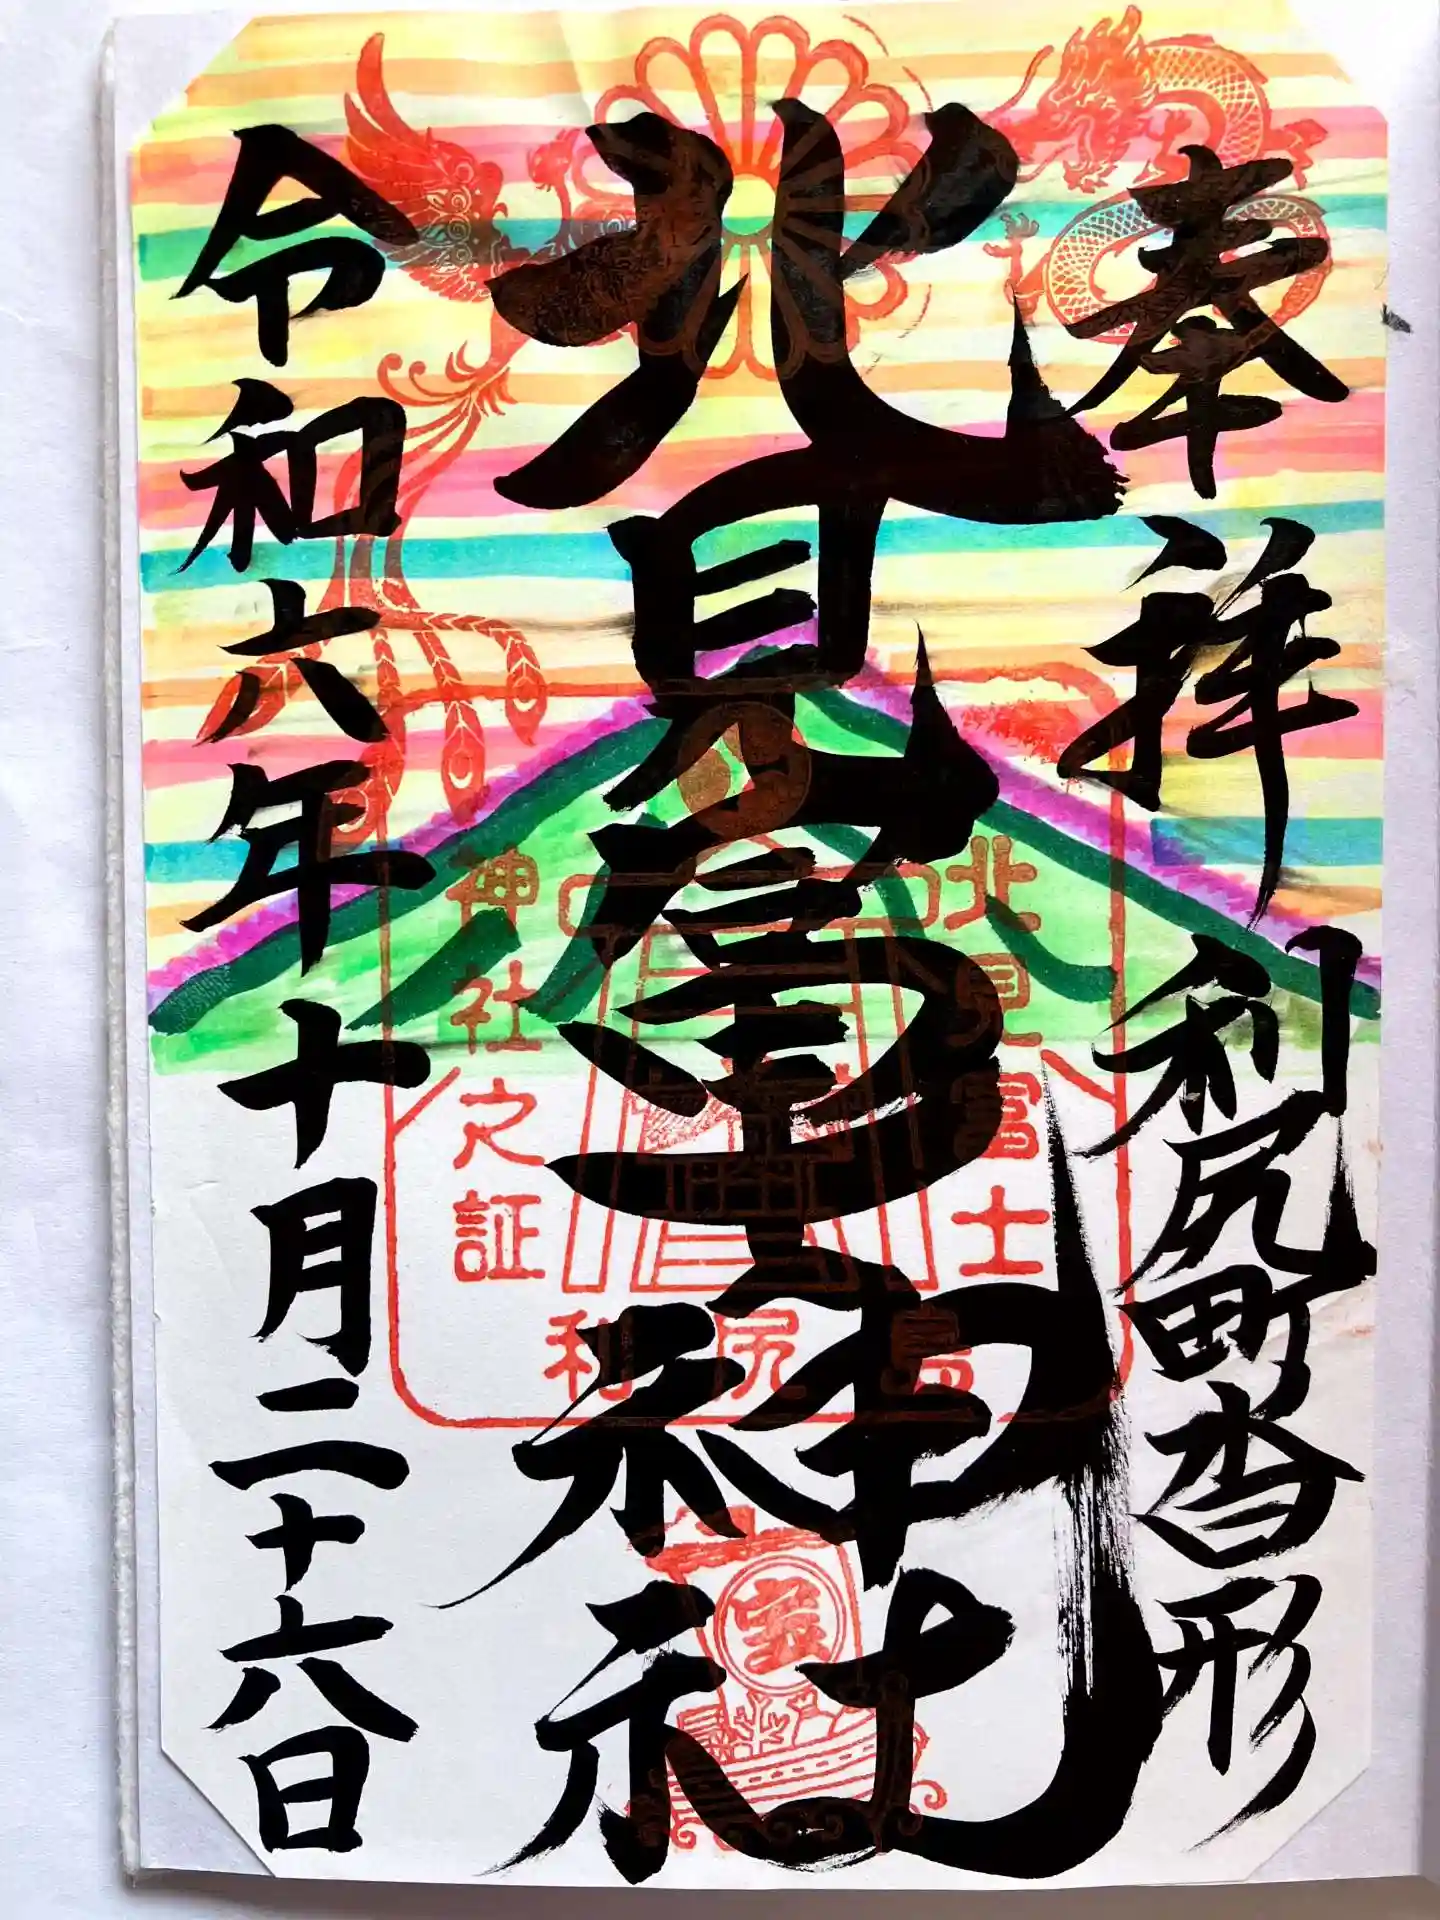 奉拝 利尻町沓形
北見富士神社
令和六年十月二十六日
北見富士
神社之証
利尻島
宝